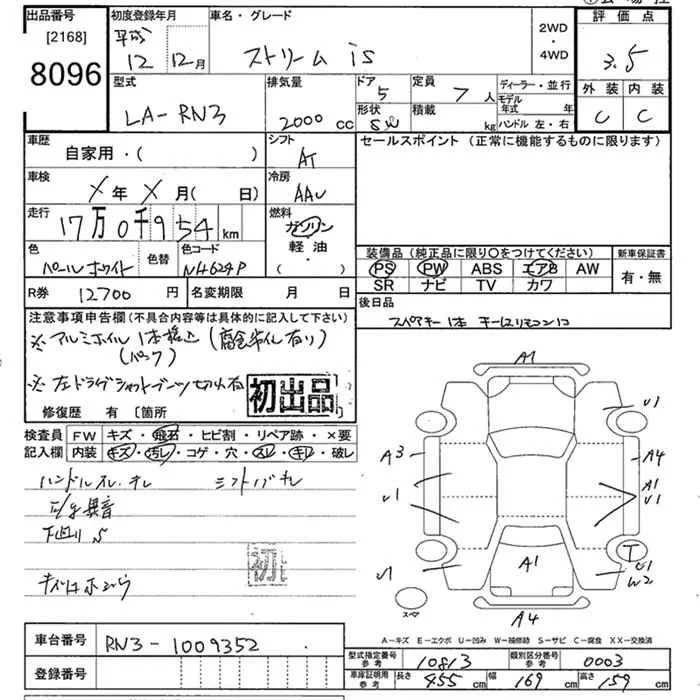 出品番号
[2168]
8096
初度登録年月
平成
12 12月
車名・グレード
ストリーム iS
2WD
・
4WD
評価点
3.5
外装 内装
C C
型式
LA-RN3
排気量
2000 CC
ドア
5
形状
SW
定員
7 人
積載
kg
ディーラー・並行
モデル
年式 年
ハンドル 左・右
車歴
自家用・( )
シフト
AT
セールスポイント (正常に機能するものに限ります)
車検
X 年 X 月( 日)
冷房
AAC
走行
17万0千954 km
燃料
ガソリン
軽油・
( )
色
パールホワイト
色替
色コード
NH624P
装備品 (純正品に限り○をつけてください)
PS PW ABS エアB AW
SR ナビ TV カワ
新車保証書
有・無
R券 12700 円
名変期限 月 日
後日品
スペアキー1本 キーレスリモコン1コ
注意事項申告欄 (不具合内容等は具体的に記入して下さい)
※ アルミホイル 1本積込 (腐食劣化有り)
※ 左ドラブシャフトブーツ切れ有
初出品
修復歴 有 〔箇所
検査員
記入欄
FW キズ・飛石・ヒビ割・リペア跡・×要
内装 キズ・汚レ・コゲ・穴・スレ・キレ・破レ
ハンドルスレ、キレ
シフトノブキレ
異音
下回りS
初
A1
U1
A3
A4
U1
A1
U1
A1
U1
U1
W2
スペア
A4
A-キズ E-エクボ U-凹み W-補修跡 S-サビ C-腐食 XX-交換済
車台番号
RN3-1009352
登録番号
型式指定番号
参考
10813
類別区分番号
参考
0003
車庫証明用
参考
長さ 455 cm
幅 169 cm
高さ 159 cm